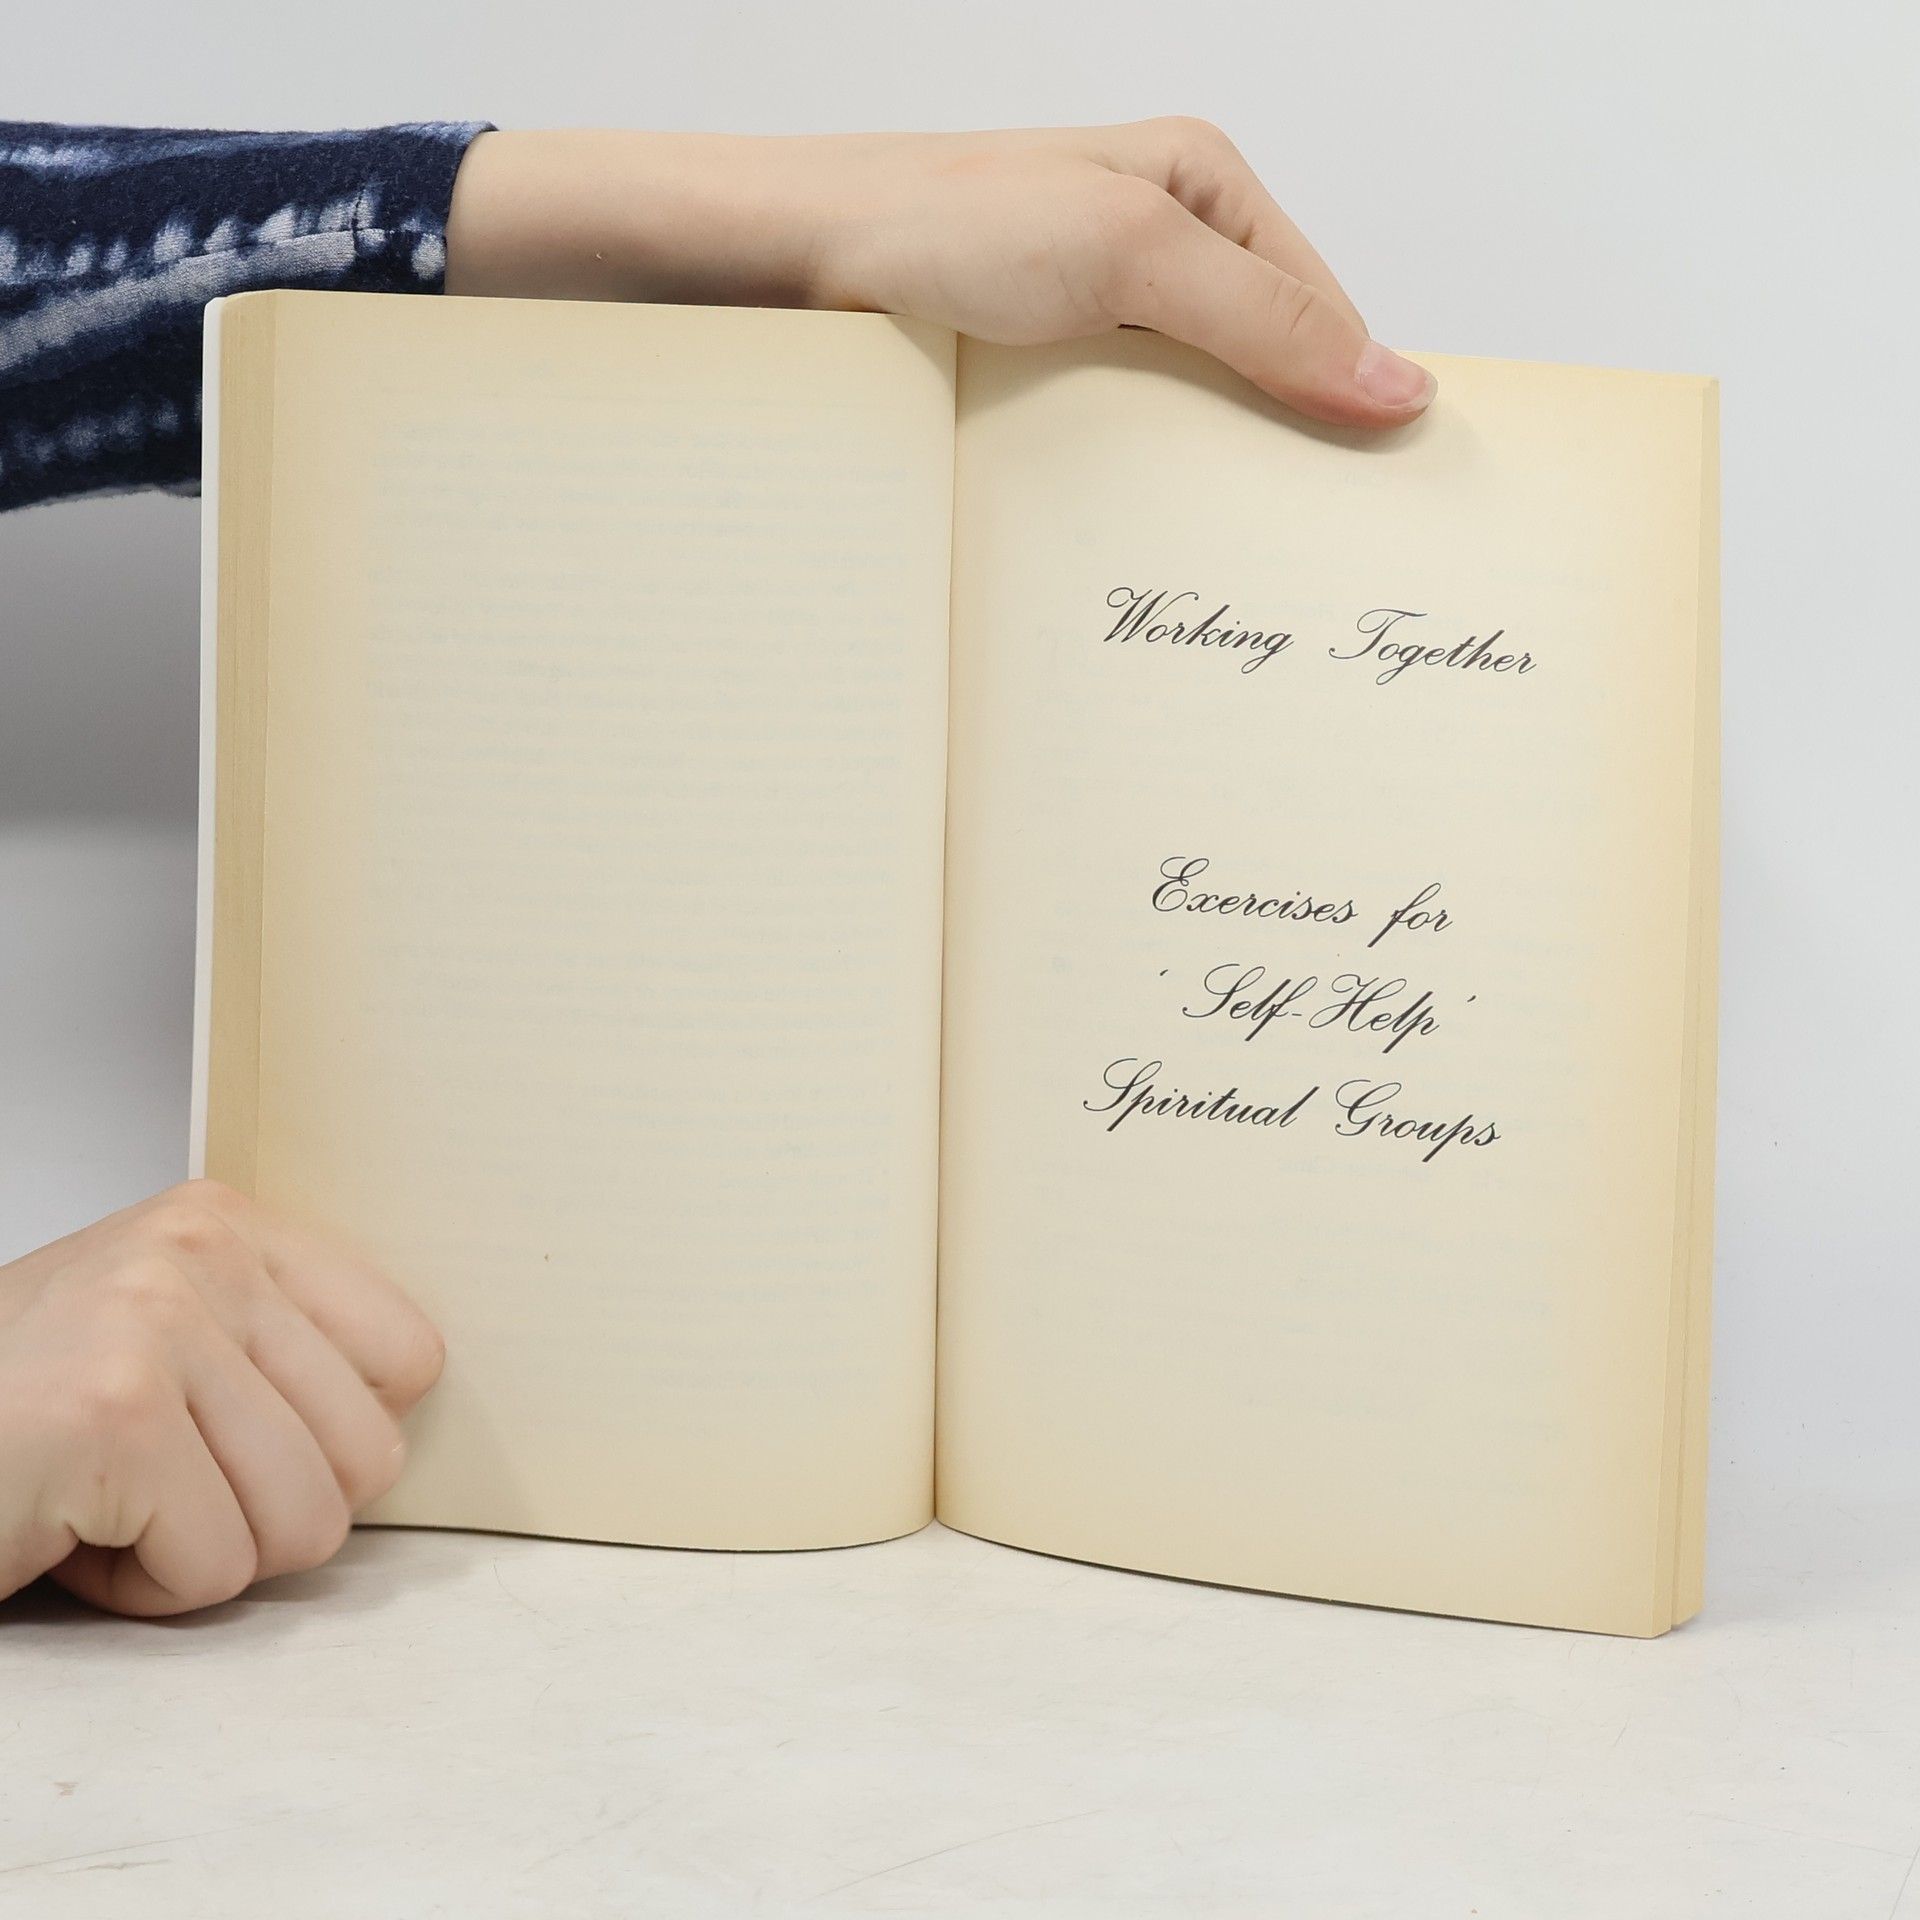 Working Together
Exercises for
'Self-Help'
Spiritual Groups